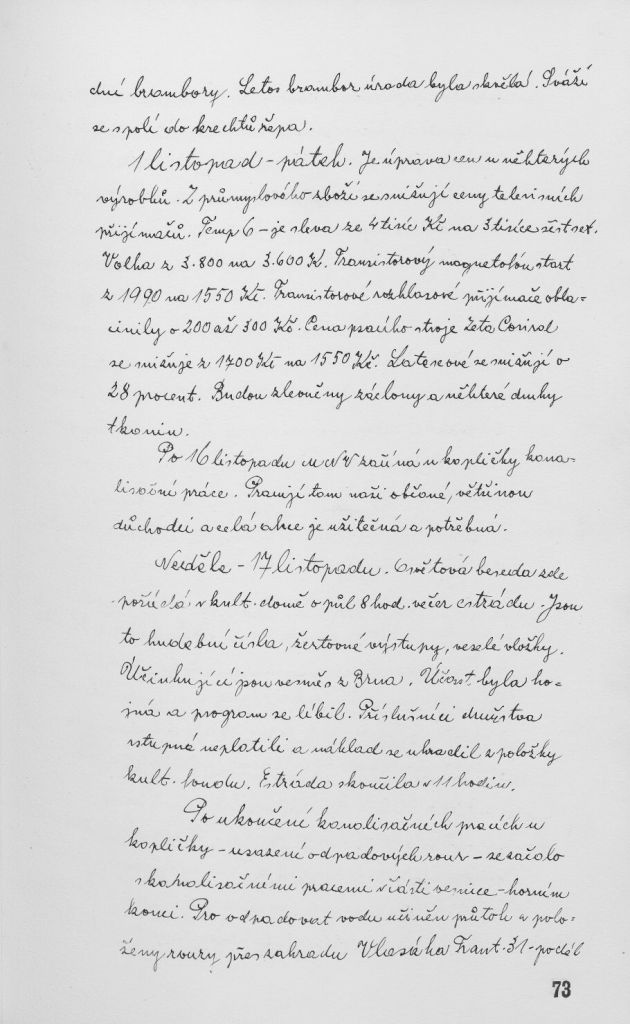 dní brambory. Letos brambor úroda byla skvělá. Sváží
se s polí do krechtů řepa.
1 listopad - pátek. Je úprava cen u některých
výrobků. Z průmyslového zboží se snižují ceny televisních
přijímačů. Temp 6 - je sleva ze 4 tisíc Kč na 3 tisíce šest set.
Volha z 3.800 na 3.600 K. Transistorový magnetofon start
z 1990 na 1550 Kč. Transistorové rozhlasové přijímače obla-
cinily o 200 až 300 Kč. Cena psacího stroje Zeta Consul
se snižuje z 1700 Kč na 1550 Kč. Latexové se snižují o
28 procent. Budou zlevněny záclony a některé druhy
tkanin.
Po 16 listopadu MNV začíná u kapličky kana-
lisační práce. Pracují tam naši občané, většinou
důchodci a celá akce je užitečná a potřebná.
Neděle - 17 listopadu. Osvětová beseda zde
pořádá v kult. domě o půl 8 hod. večer estrádu. Jsou
to hudební čísla, žertovné výstupy, veselé vložky.
Účinkující jsou vesměs z Brna. Účast byla ho-
jná a program se líbil. Příslušníci družstva
vstupné neplatili a náklad se uhradil z položky
kult. fondu. Estráda skončila v 11 hodin.
Po ukončení kanalisačních pracích u
kapličky - usazení odpadových rour - se začalo
s kanalisačními pracemi v části vesnice - horním
konci. Pro odpadovou vodu učiněn průtok a polo-
ženy roury přes zahradu Vlasáka Frant. 31 - podél
73